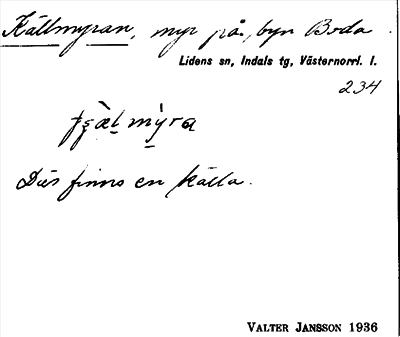 Källmyran, myr på byn Boda.
Lidens sn, Indals tg, Västernorrl. l.
234
Där finns en källa.
VALTER JANSSON 1936